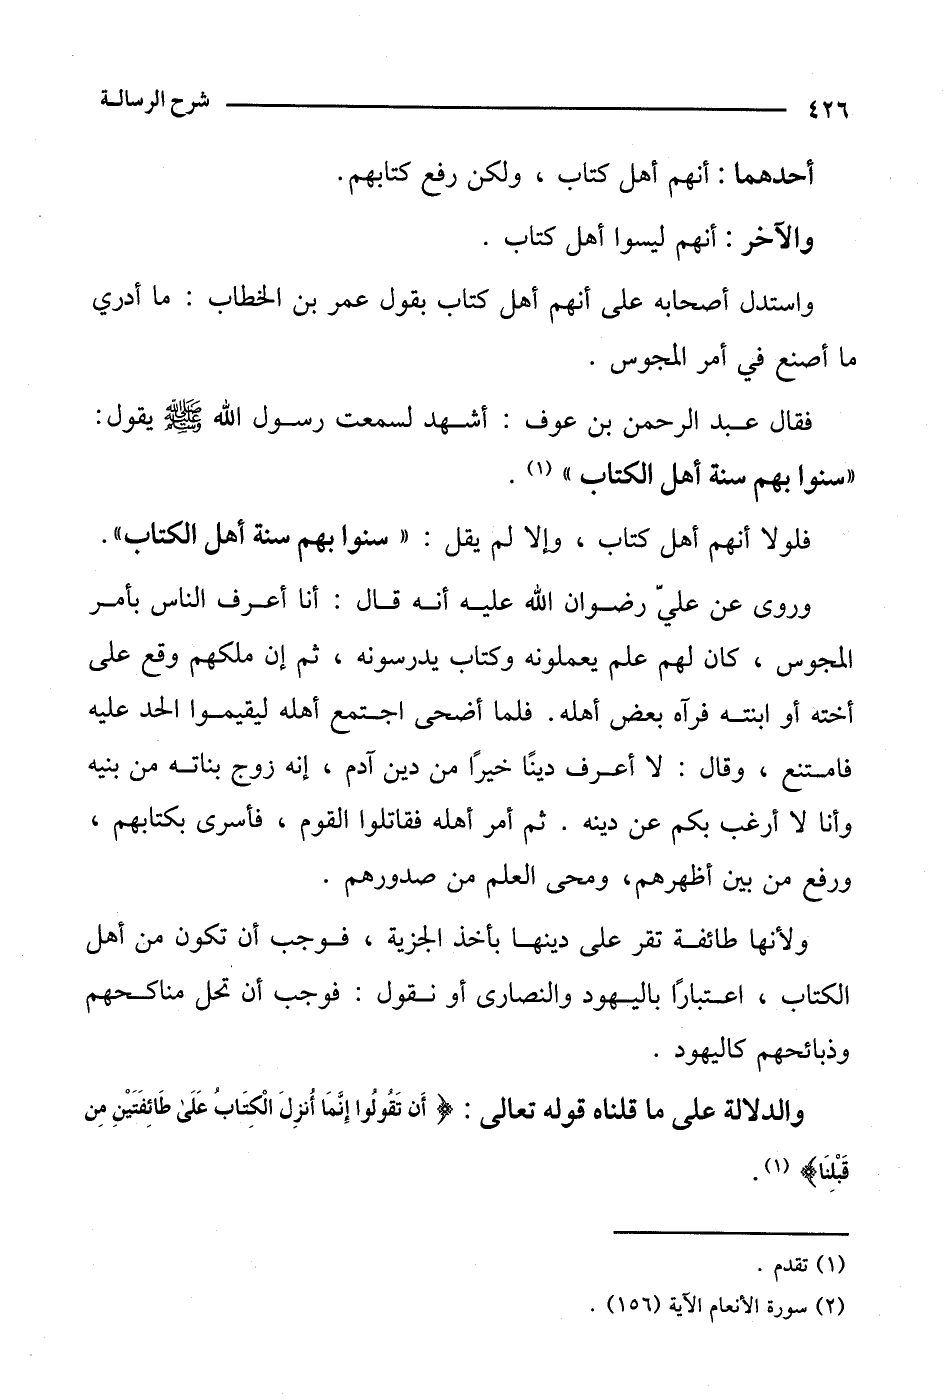 ٤٢٦ شرح الرسالة
أحدهما : أنهم أهل كتاب ، ولكن رفع كتابهم.
والآخر : أنهم ليسوا أهل كتاب .
واستدل أصحابه على أنهم أهل كتاب بقول عمر بن الخطاب : ما أدري
ما أصنع في أمر المجوس .
فقال عبد الرحمن بن عوف : أشهد لسمعت رسول الله ﷺ يقول:
«سنوا بهم سنة أهل الكتاب » (١) .
فلولا أنهم أهل كتاب ، وإلا لم يقل : « سنوا بهم سنة أهل الكتاب».
وروى عن عليّ رضوان الله عليه أنه قال : أنا أعرف الناس بأمر
المجوس ، كان لهم علم يعملونه وكتاب يدرسونه ، ثم إن ملكهم وقع على
أخته أو ابنته فرآه بعض أهله. فلما أضحى اجتمع أهله ليقيموا الحد عليه
فامتنع ، وقال : لا أعرف دينًا خيرًا من دين آدم ، إنه زوج بناته من بنيه
وأنا لا أرغب بكم عن دينه . ثم أمر أهله فقاتلوا القوم ، فأسرى بكتابهم ،
ورفع من بين أظهرهم، ومحى العلم من صدورهم .
ولأنها طائفة تقر على دينها بأخذ الجزية ، فوجب أن تكون من أهل
الكتاب ، اعتبارًا باليهود والنصارى أو نقول : فوجب أن تحل مناكحهم
وذبائحهم كاليهود .
والدلالة على ما قلناه قوله تعالى : ﴿ أَن تَقُولُوا إِنَّمَا أُنزِلَ الْكِتَابُ عَلَىٰ طَائِفَتَيْنِ مِن
قَبْلِنَا﴾ (١).
(١) تقدم .
(٢) سورة الأنعام الآية (١٥٦) .